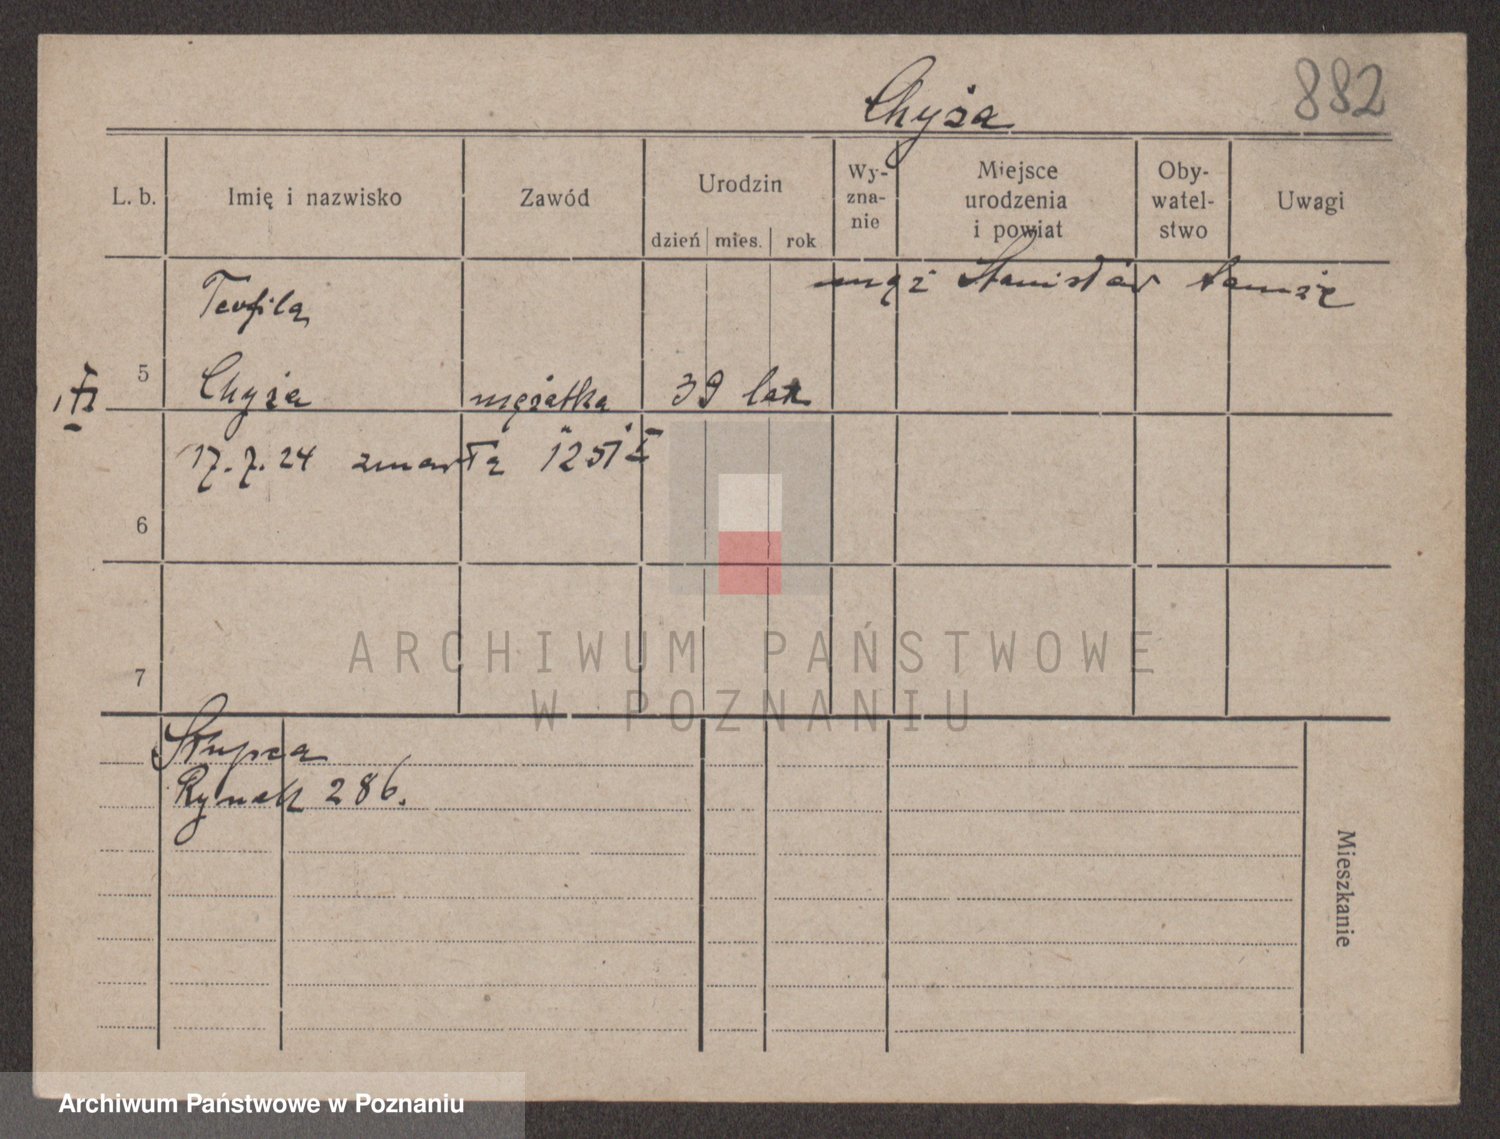 882
Chyża
L. b.
Imię i nazwisko
Zawód
Urodzin
dzień mies. rok
Wy-
zna-
nie
Miejsce
urodzenia
i powiat
Oby-
watel-
stwo
Uwagi
mąż Stanisław
Teofila
5
Chyża mężatka 39 lat
17.7.24 zmarła
6
7
ARCHIWUM PAŃSTWOWE
W POZNANIU
Słupca
Rynek 286.
Mieszkanie
Archiwum Państwowe w Poznaniu